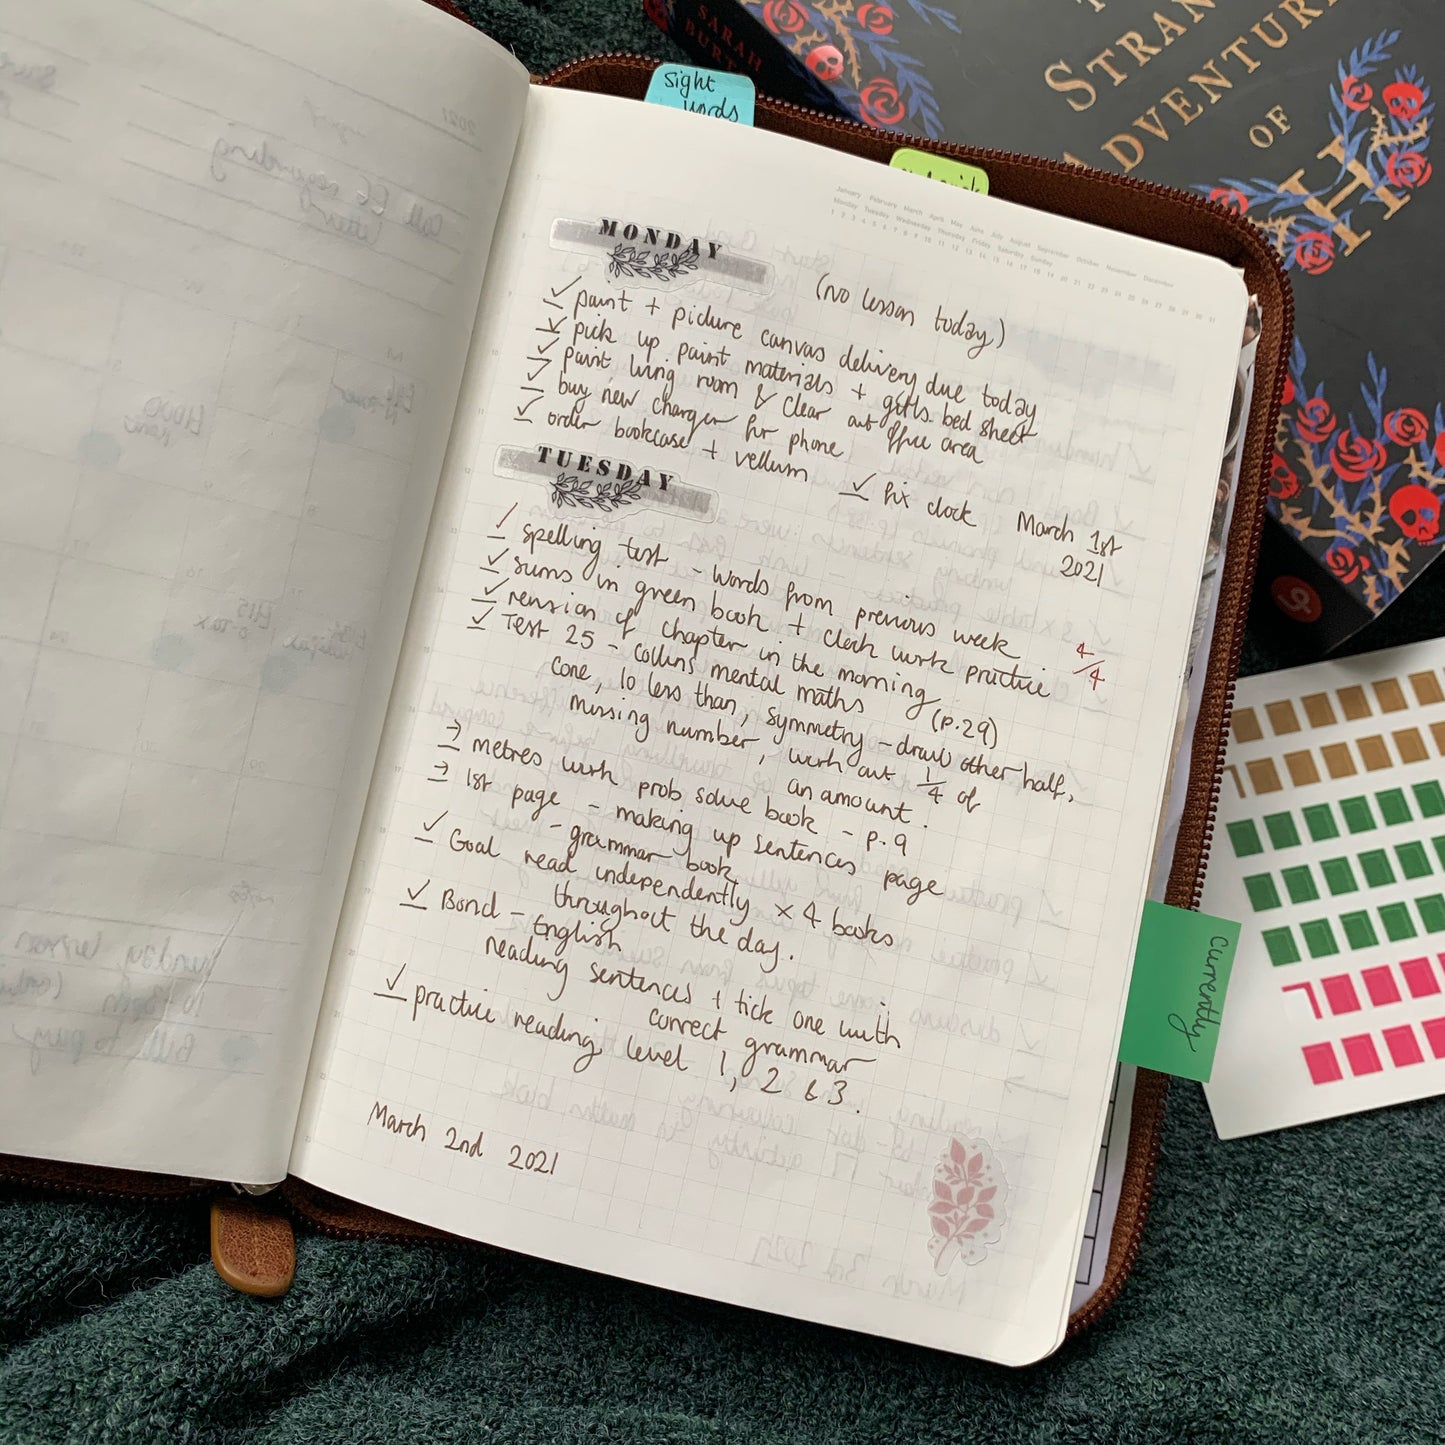 sight
words
STRAN
ADVENTUR
OF
H
SARAH
BURT
January February March April May June July August September October November December
Monday Tuesday Wednesday Thursday Friday Saturday Sunday
1 2 3 4 5 6 7 8 9 10 11 12 13 14 15 16 17 18 19 20 21 22 23 24 25 26 27 28 29 30 31
MONDAY
(no lesson today)
✓ paint + picture canvas delivery due today
✓ pick up paint materials + gifts. bed sheet
✓ paint living room & clear out office area
✓ buy new charger for phone
✓ order bookcase + vellum
✓ fix clock
March 1st
2021
TUESDAY
✓ spelling test - words from previous week
4/4
✓ sums in green book + clock work practice
✓ revision of chapter in the morning (p.29)
✓ Test 25 - collins mental maths
cone, 10 less than, symmetry - draw other half,
missing number, work out 1/4 of
an amount.
→ metres work prob. solve book - p.9
→ 1st page - making up sentences page
- grammar book
✓ Goal read independently × 4 books
throughout the day.
✓ Bond - English
reading sentences + tick one with
correct grammar
✓ practice reading level 1, 2 & 3.
March 2nd 2021
currently